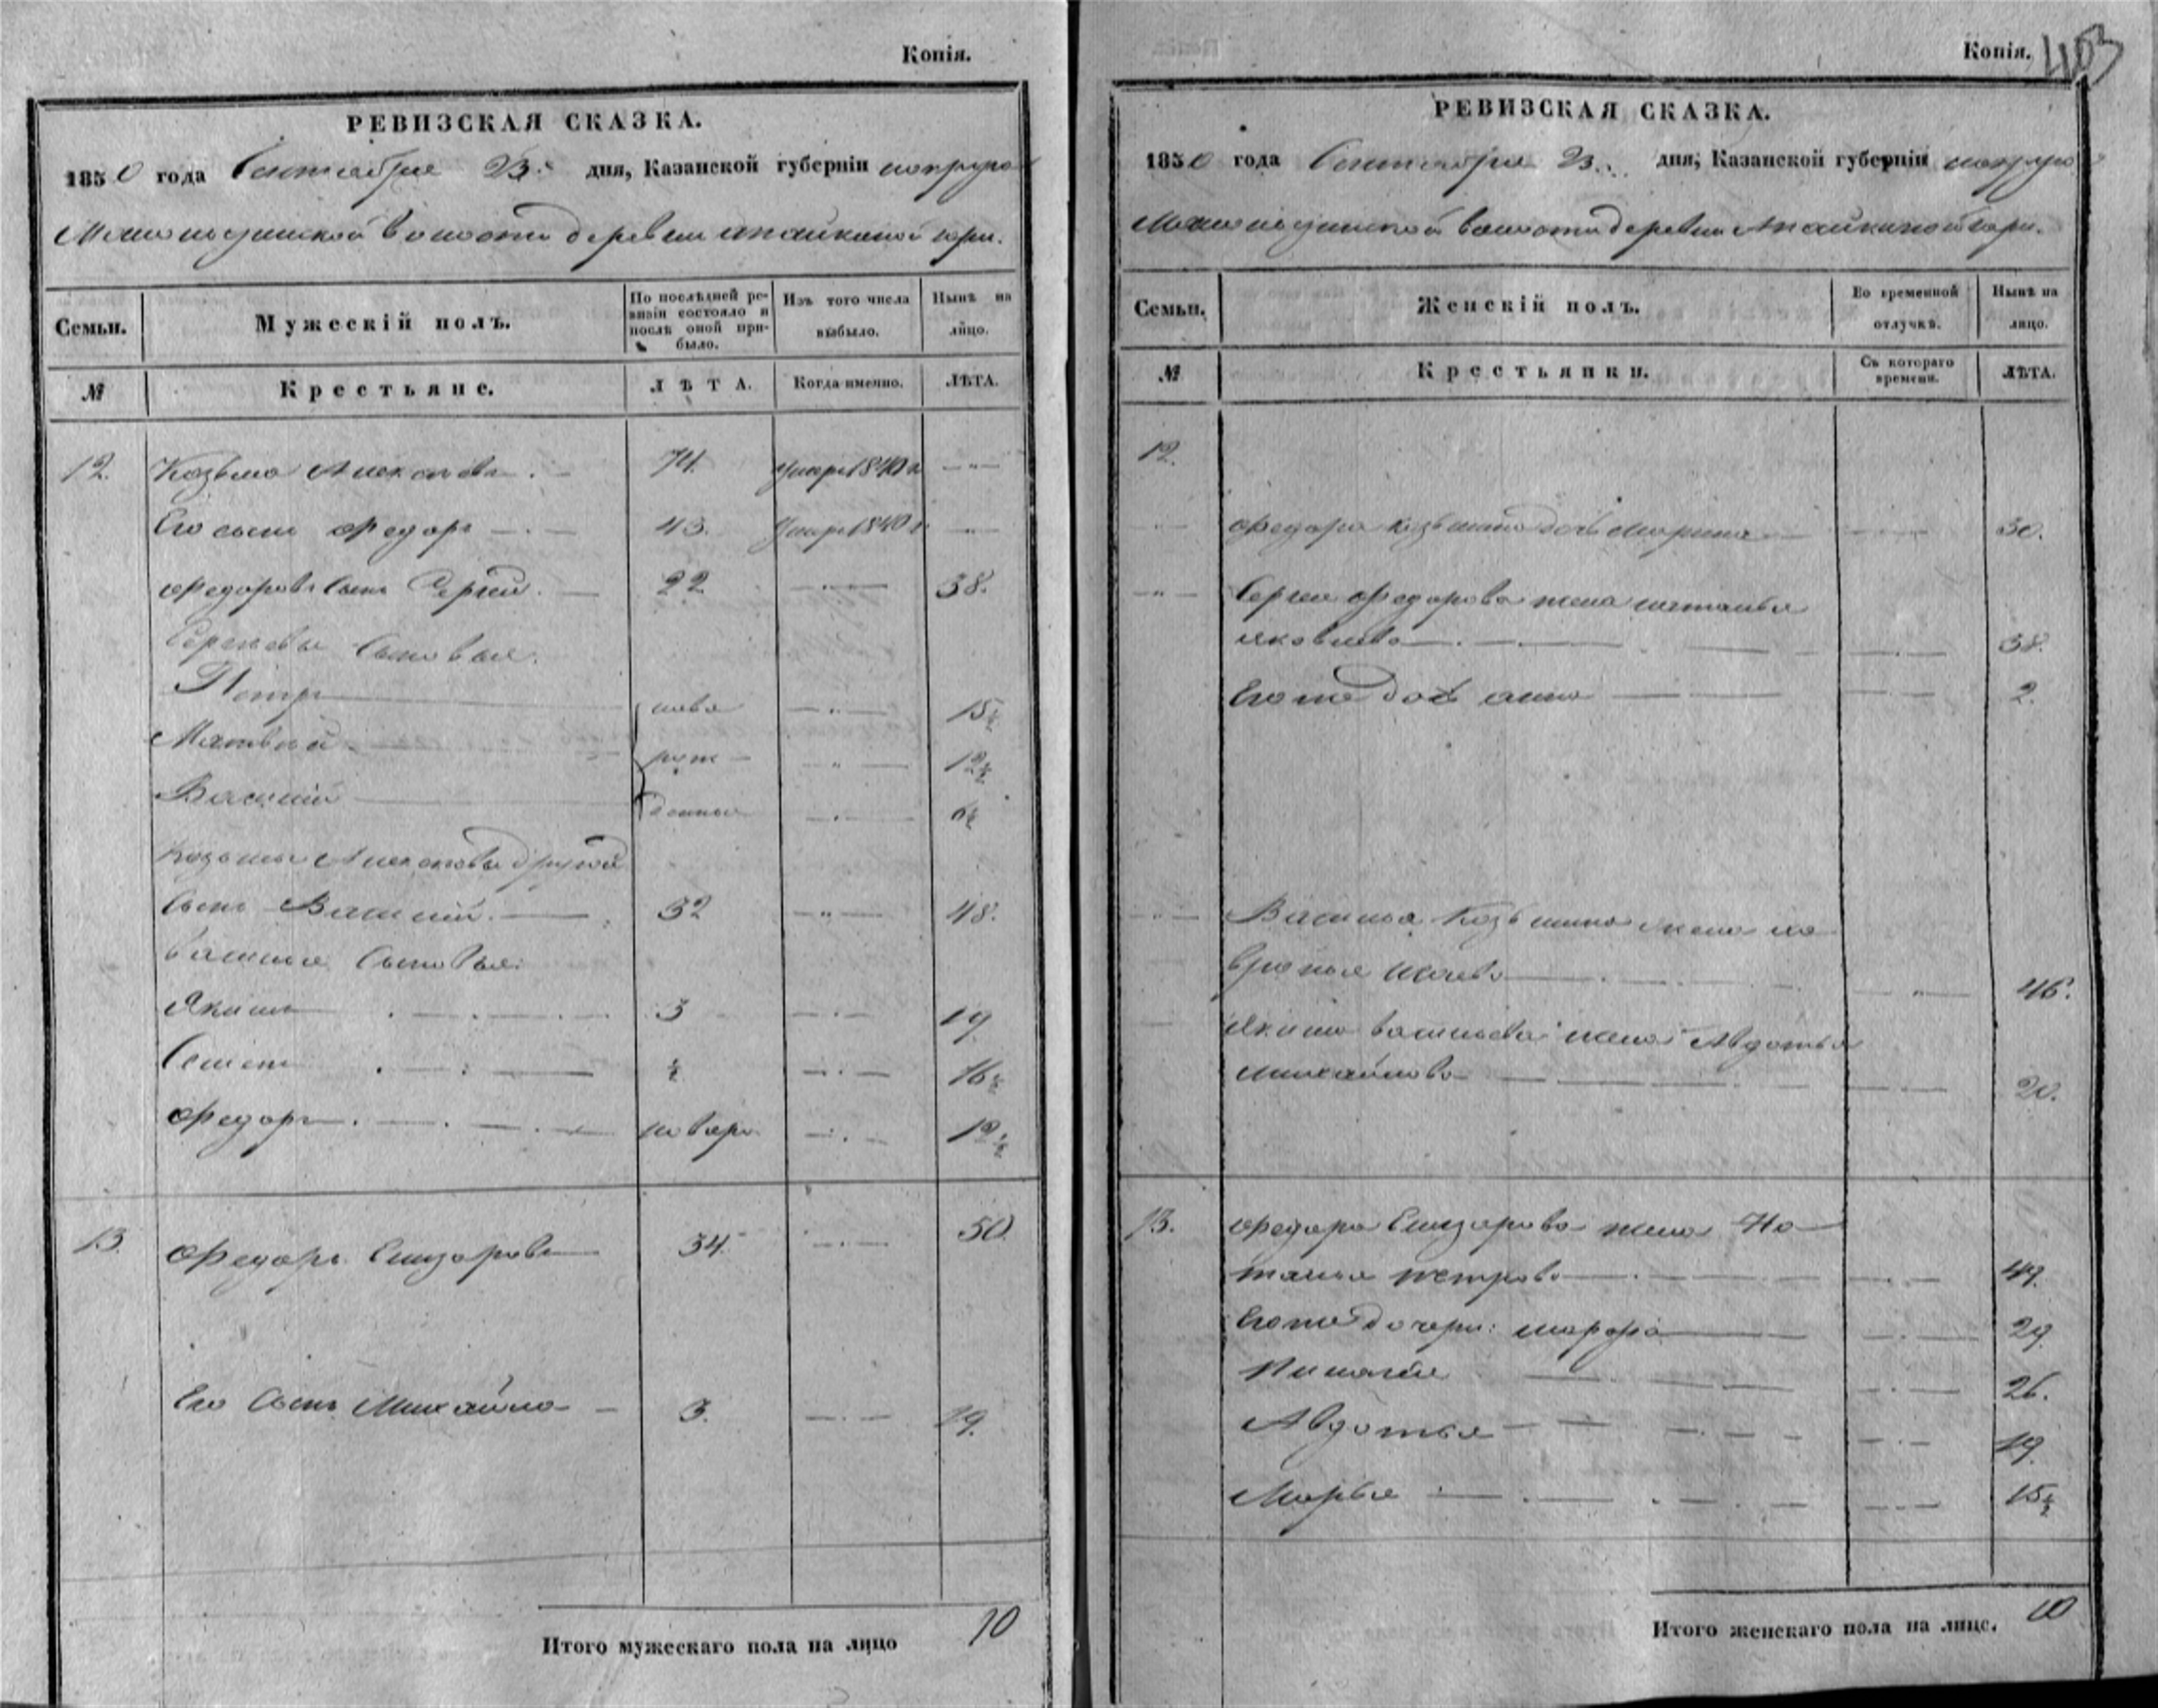 Копія.
РЕВИЗСКАЯ СКАЗКА.
1850 года Сентября 23. дня, Казанской губерніи
волости деревни Апайкиной горы.
Семьи.
Мужескій полъ.
По послѣдней ре-
визіи состояло и
послѣ оной при-
было.
Изъ того числа
выбыло.
Нынѣ на
лицо.
№
Крестьяне.
ЛѢТА.
Когда именно.
ЛѢТА.
12. Козьма Алексѣевъ 74. умеръ 1840 г
Его сынъ Федоръ 43. умеръ 1840 г
Федоровъ сынъ Сергей. 22 38.
Сергѣевы сыновья.
Петръ ново 15½
Матвей рож 12½
Василій денные 6½
Козьмы Алексѣева другой
сынъ Василий. 32 48.
Василья сыновья:
Якимъ 3 19.
Семенъ ½ 16½
Федоръ новоро 12½
13. Федоръ Елизаровъ 34. 50
Его сынъ Михайло 3. 19.
Итого мужескаго пола на лицо 10
Копія. 403
РЕВИЗСКАЯ СКАЗКА.
1850 года Сентября 23. дня, Казанской губерніи
волости деревни Апайкиной горы.
Семьи.
Женскій полъ.
Во временной
отлучкѣ.
Нынѣ на
лицо.
№
Крестьянки.
Съ котораго
времени.
ЛѢТА.
12.
Федора Козьмина дочь Марина 30.
Сергея Федорова жена Наталья
Яковлева 38.
Его же дочь Анна 2.
Василья Козьмина жена
46.
Якима Васильева жена Авдотья
Михайлова 20.
13. Федора Елизарова жена На
талья Петрова 49.
Его же дочери: Марфа 29
Пилагея 26.
Авдотья 19.
Марья 15½
Итого женскаго пола на лице. 10